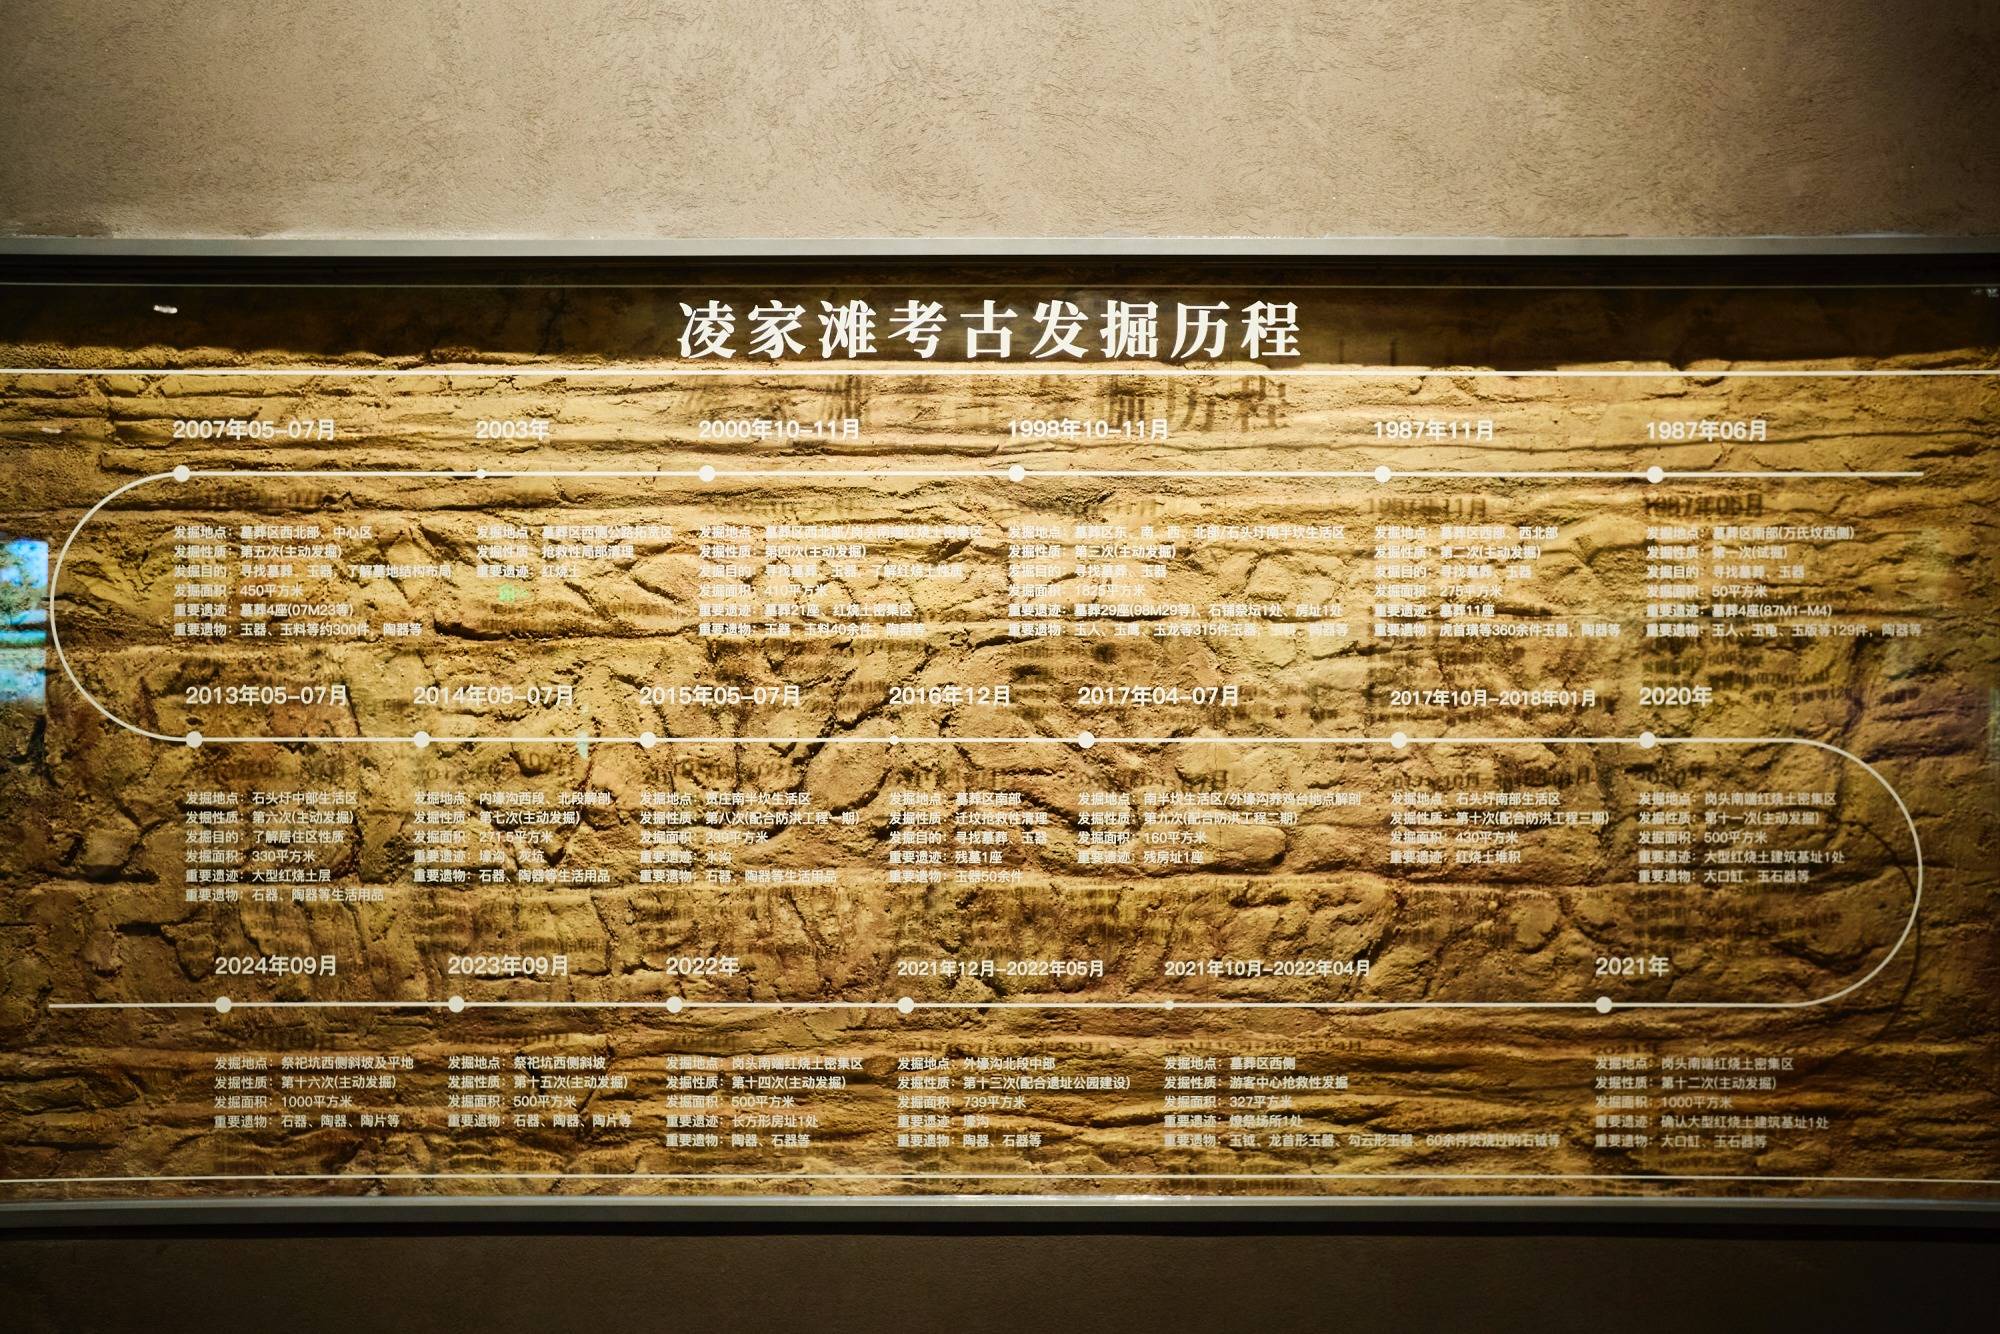 凌家滩考古发掘历程
2007年05-07月
发掘地点：墓葬区西北部、中心区
发掘性质：第五次(主动发掘)
发掘目的：寻找墓葬、玉器，了解墓地结构布局
发掘面积：450平方米
重要遗迹：墓葬4座(07M23等)
重要遗物：玉器、玉料等约300件，陶器等
2003年
发掘地点：墓葬区西侧公路拓宽区
发掘性质：抢救性局部清理
重要遗迹：红烧土
2000年10-11月
发掘地点：墓葬区西北部/岗头南端红烧土密集区
发掘性质：第四次(主动发掘)
发掘目的：寻找墓葬、玉器，了解红烧土性质
发掘面积：410平方米
重要遗迹：墓葬21座、红烧土密集区
重要遗物：玉器、玉料40余件，陶器等
1998年10-11月
发掘地点：墓葬区东、南、西、北部/石头圩南半坎生活区
发掘性质：第三次(主动发掘)
发掘目的：寻找墓葬、玉器
发掘面积：1825平方米
重要遗迹：墓葬29座(98M29等)、石铺祭坛1处、房址1处
重要遗物：玉人、玉鹰、玉龙等315件玉器，玉料、陶器等
1987年11月
发掘地点：墓葬区西部、西北部
发掘性质：第二次(主动发掘)
发掘目的：寻找墓葬、玉器
发掘面积：275平方米
重要遗迹：墓葬11座
重要遗物：虎首璜等360余件玉器，陶器等
1987年06月
发掘地点：墓葬区南部(万氏坟西侧)
发掘性质：第一次(试掘)
发掘目的：寻找墓葬、玉器
发掘面积：50平方米
重要遗迹：墓葬4座(87M1-M4)
重要遗物：玉人、玉龟、玉版等129件，陶器等
2013年05-07月
发掘地点：石头圩中部生活区
发掘性质：第六次(主动发掘)
发掘目的：了解居住区性质
发掘面积：330平方米
重要遗迹：大型红烧土层
重要遗物：石器、陶器等生活用品
2014年05-07月
发掘地点：内壕沟西段、北段解剖
发掘性质：第七次(主动发掘)
发掘面积：271.5平方米
重要遗迹：壕沟、灰坑
重要遗物：石器、陶器等生活用品
2015年05-07月
发掘地点：贾庄南半坎生活区
发掘性质：第八次(配合防洪工程一期)
发掘面积：239平方米
重要遗迹：水沟
重要遗物：石器、陶器等生活用品
2016年12月
发掘地点：墓葬区南部
发掘性质：迁坟抢救性清理
发掘目的：寻找墓葬、玉器
重要遗迹：残墓1座
重要遗物：玉器50余件
2017年04-07月
发掘地点：南半坎生活区/外壕沟养鸡台地点解剖
发掘性质：第九次(配合防洪工程二期)
发掘面积：160平方米
重要遗迹：残房址1座
2017年10月-2018年01月
发掘地点：石头圩南部生活区
发掘性质：第十次(配合防洪工程三期)
发掘面积：430平方米
重要遗迹：红烧土堆积
2020年
发掘地点：岗头南端红烧土密集区
发掘性质：第十一次(主动发掘)
发掘面积：500平方米
重要遗迹：大型红烧土建筑基址1处
重要遗物：大口缸、玉石器等
2024年09月
发掘地点：祭祀坑西侧斜坡及平地
发掘性质：第十六次(主动发掘)
发掘面积：1000平方米
重要遗物：石器、陶器、陶片等
2023年09月
发掘地点：祭祀坑西侧斜坡
发掘性质：第十五次(主动发掘)
发掘面积：500平方米
重要遗物：石器、陶器、陶片等
2022年
发掘地点：岗头南端红烧土密集区
发掘性质：第十四次(主动发掘)
发掘面积：500平方米
重要遗迹：长方形房址1处
重要遗物：陶器、石器等
2021年12月-2022年05月
发掘地点：外壕沟北段中部
发掘性质：第十三次(配合遗址公园建设)
发掘面积：739平方米
重要遗迹：壕沟
重要遗物：陶器、石器等
2021年10月-2022年04月
发掘地点：墓葬区西侧
发掘性质：游客中心抢救性发掘
发掘面积：327平方米
重要遗迹：燎祭场所1处
重要遗物：玉钺、龙首形玉器、勾云形玉器、60余件焚烧过的石钺等
2021年
发掘地点：岗头南端红烧土密集区
发掘性质：第十二次(主动发掘)
发掘面积：1000平方米
重要遗迹：确认大型红烧土建筑基址1处
重要遗物：大口缸、玉石器等